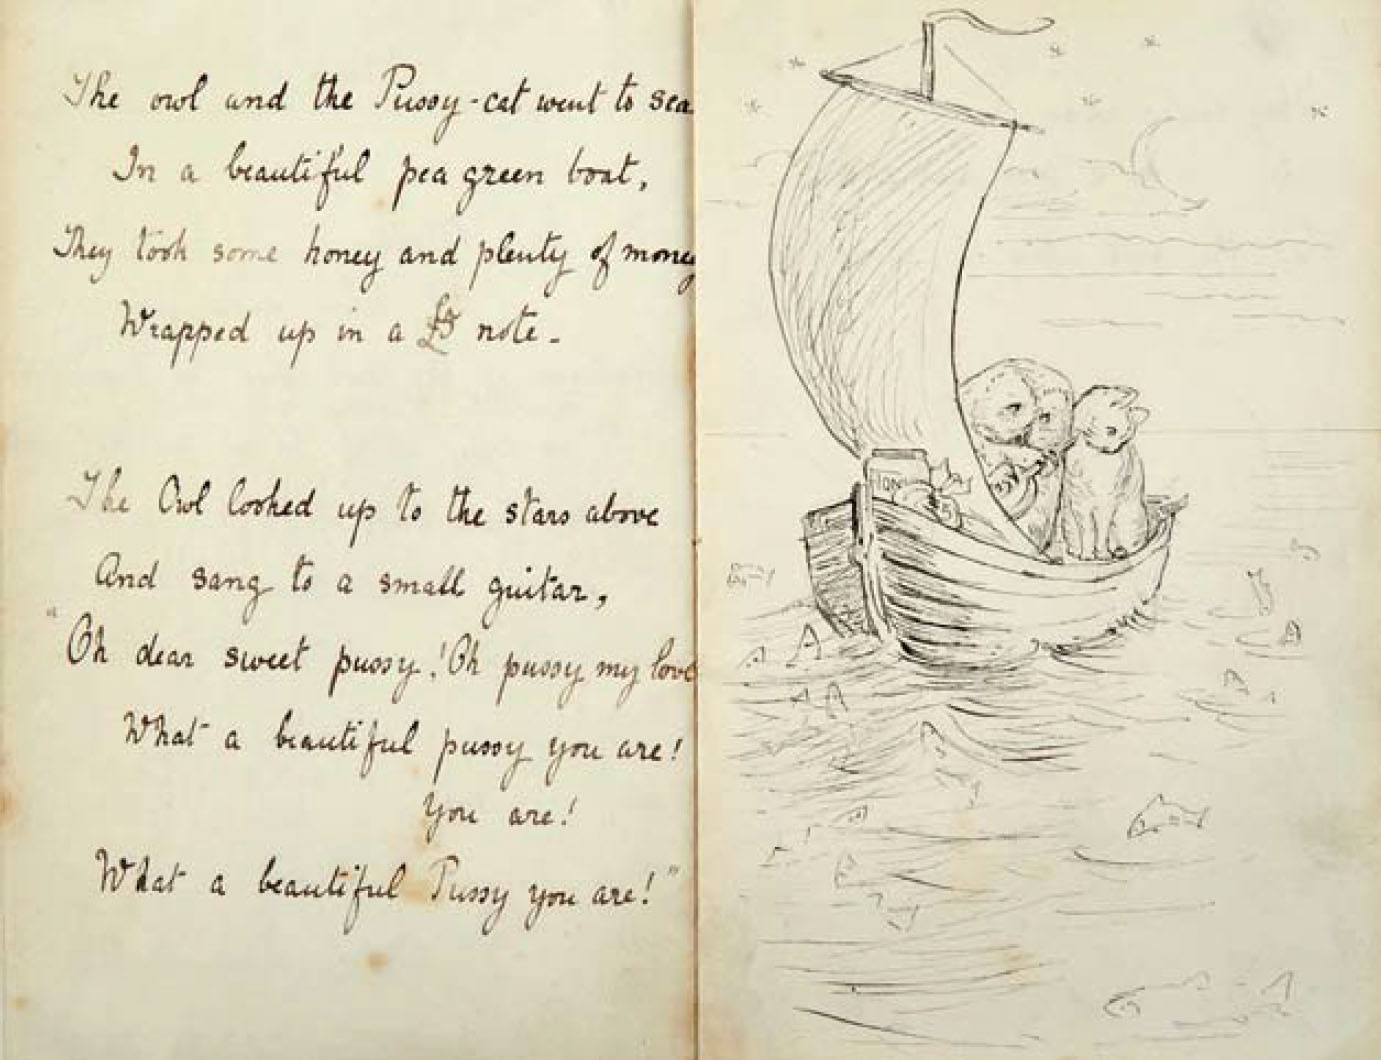 The owl and the Pussy-cat went to sea
In a beautiful pea green boat,
They took some honey and plenty of money
Wrapped up in a £5 note.
The Owl looked up to the stars above
And sang to a small guitar,
"Oh dear sweet pussy! Oh pussy my love
What a beautiful pussy you are!
You are!
What a beautiful Pussy you are!"
HON